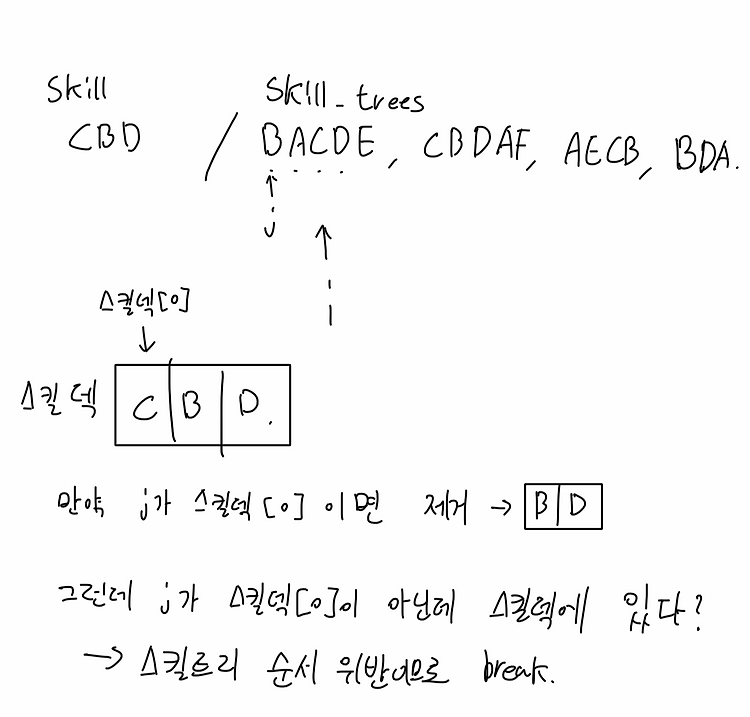 Skill
skill_trees
CBD / BACDE, CBDAF, AECB, BDA.
j
i
스킬덱[0]
스킬덱 C B D.
만약 j가 스킬덱[0] 이면 제거 → B D
그런데 j가 스킬덱[0]이 아닌데 스킬덱에 있다?
→ 스킬트리 순서 위반이므로 break.